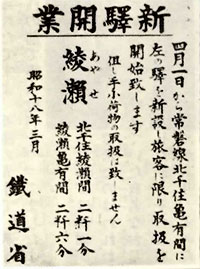 新驛開業
四月一日から常磐線北千住亀有間に
左の驛を新設し旅客に限り取扱を
開始致します
但し手小荷物の取扱は致しません
あやせ
綾瀬
北千住綾瀬間 二粁一分
綾瀬亀有間 二粁六分
昭和十八年三月
鐵道省